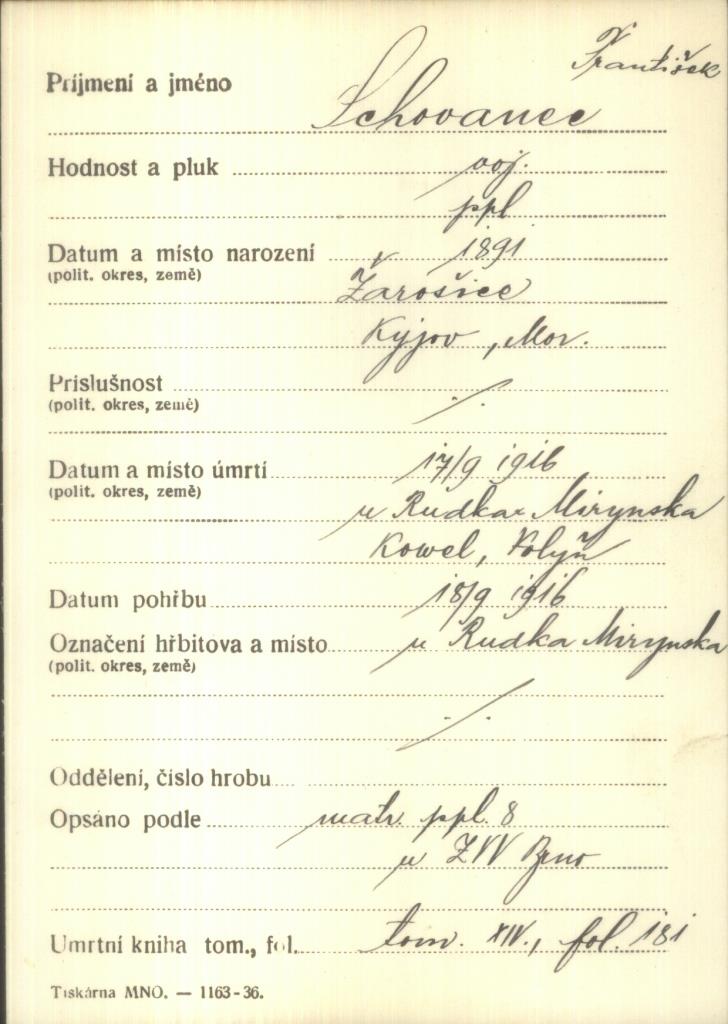 František
Príjmení a jméno Schovanec
Hodnost a pluk voj.
ppl
Datum a místo narození 1891
(polit. okres, země) Žarošice
Kyjov, Mor.
Prislušnost
(polit. okres, země) ·/.
Datum a místo úmrtí 17/9 1916
(polit. okres, země) u Rudka Mirynska
Kowel, Volyň
Datum pohřbu 18/9 1916
Označení hřbitova a místo u Rudka Mirynska
(polit. okres, země)
·/.
Oddělení, číslo hrobu
Opsáno podle matr. ppl. 8
u ZVV Brno
Umrtní kniha tom., fol. tom. XIV., fol. 181
Tiskárna MNO. — 1163-36.